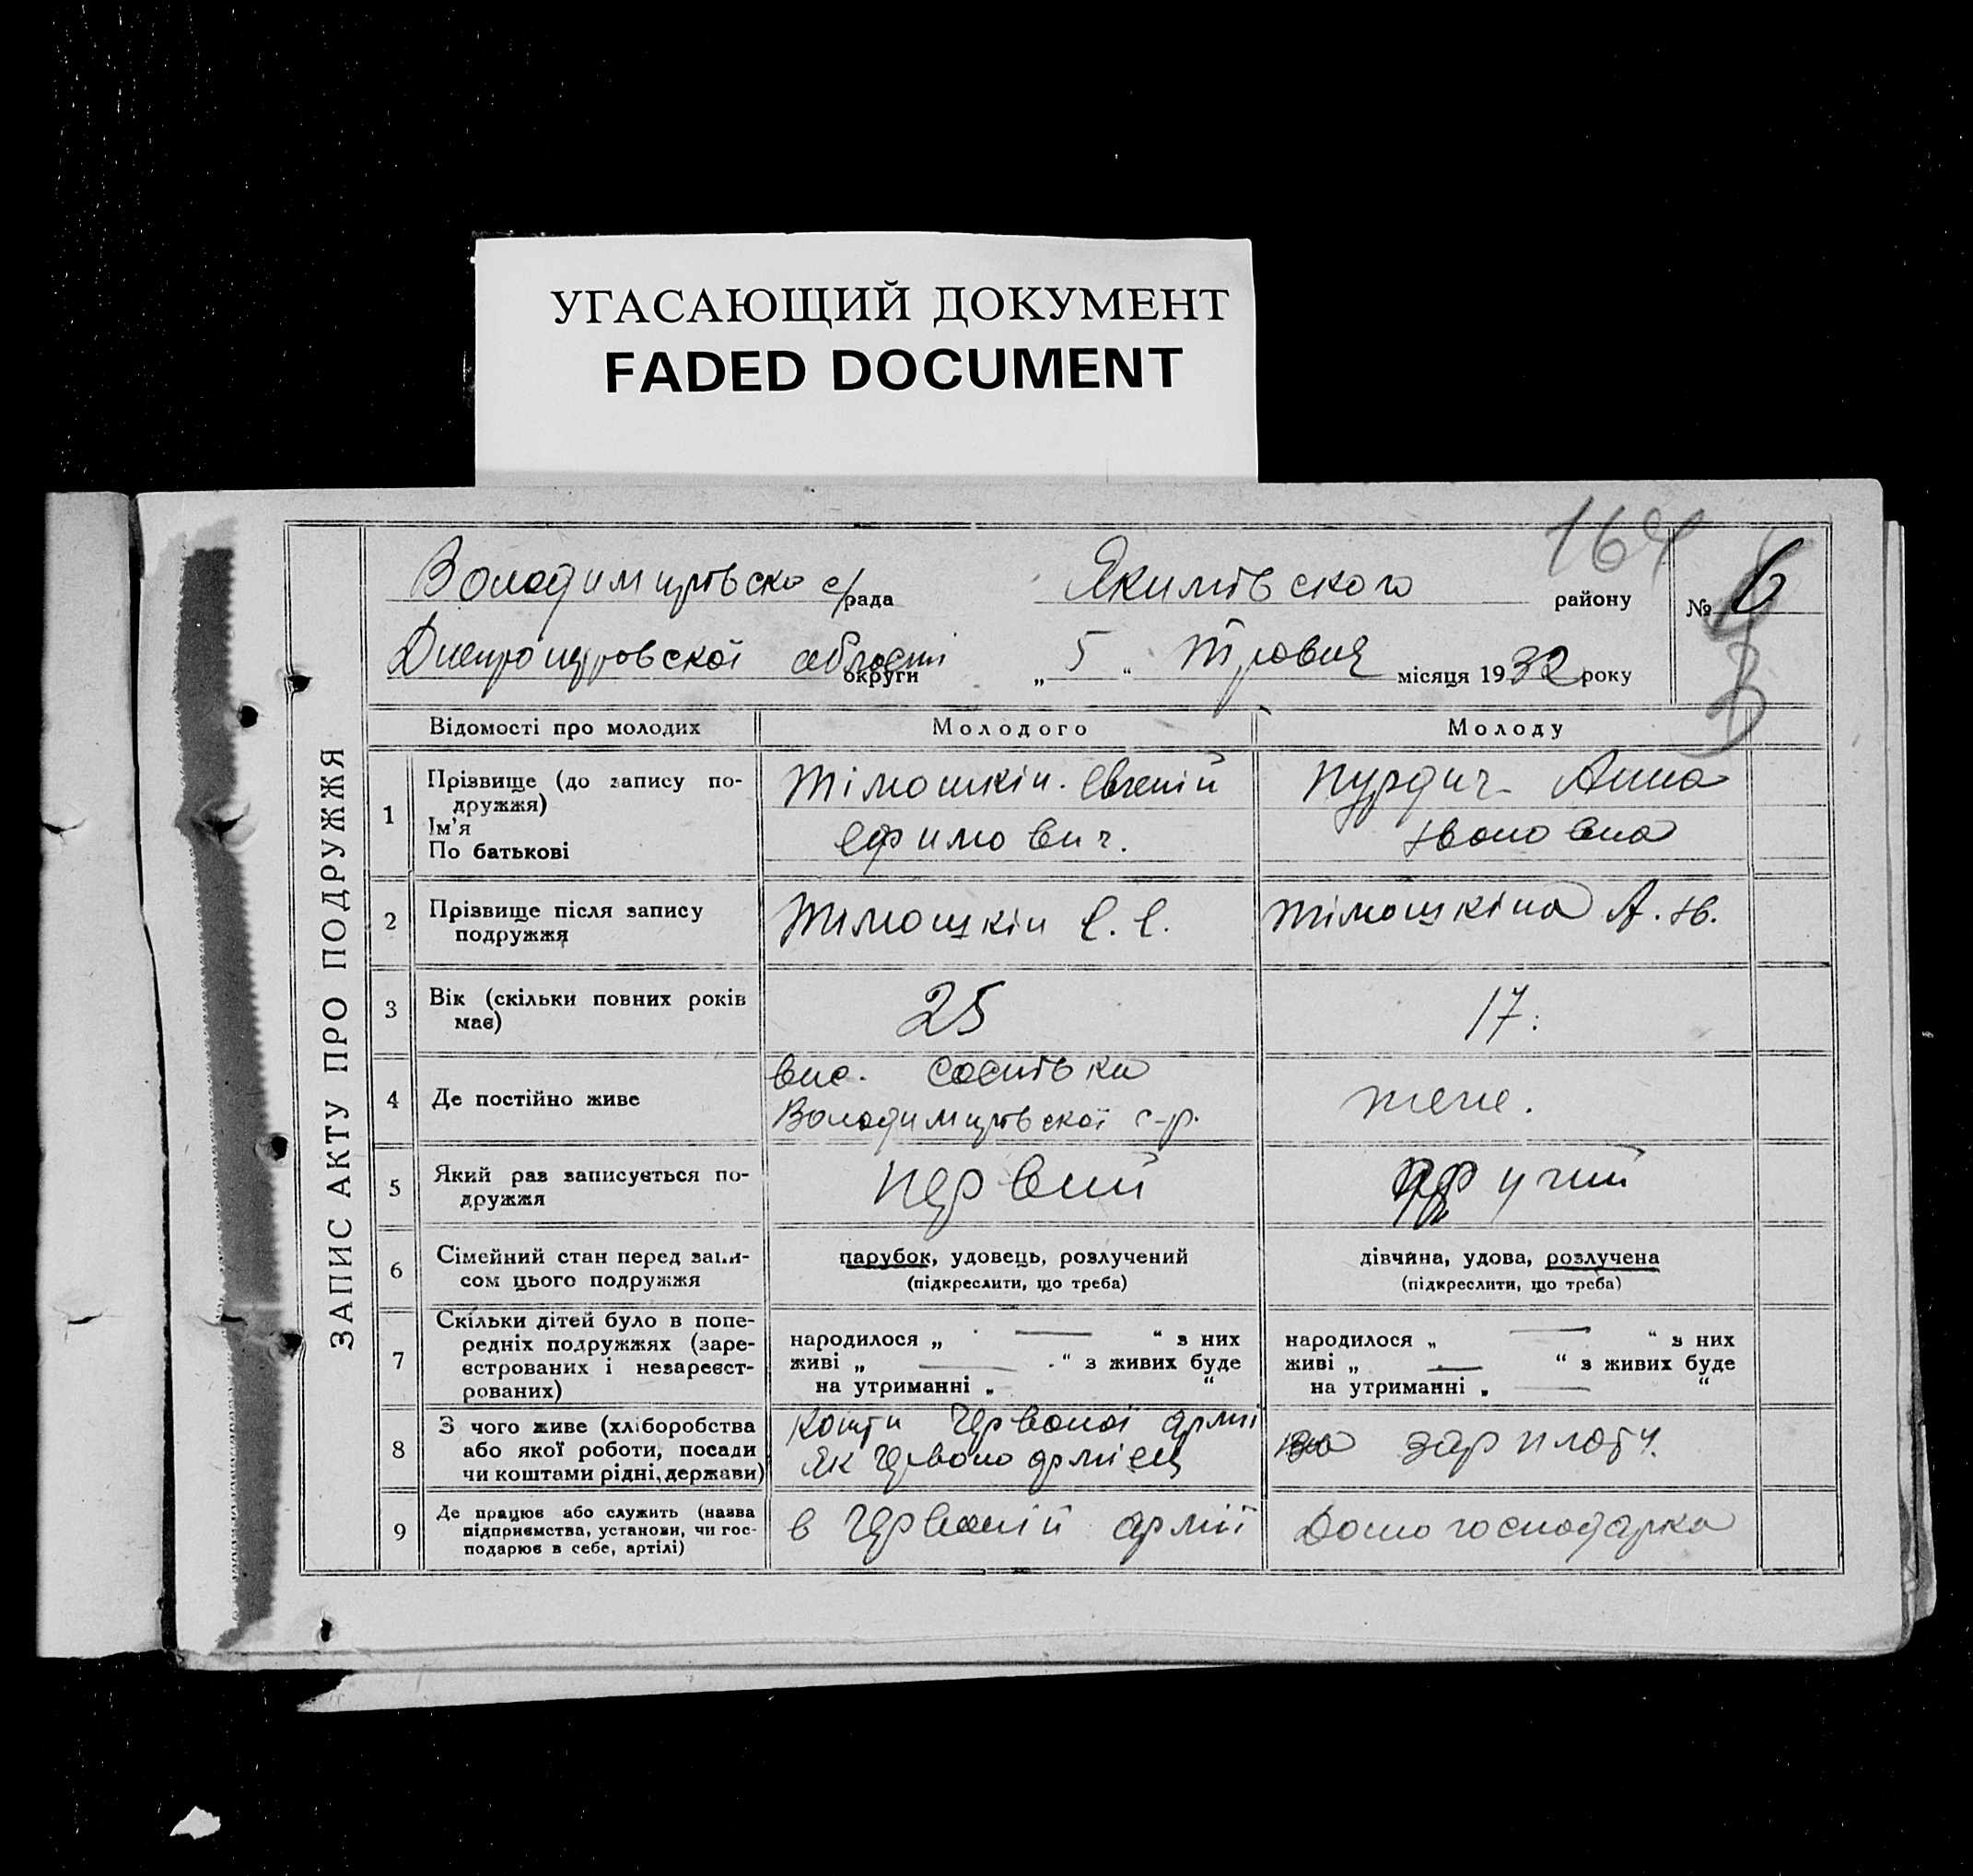 УГАСАЮЩИЙ ДОКУМЕНТ
FADED DOCUMENT
164
ЗАПИС АКТУ ПРО ПОДРУЖЖЯ
Володимирівська с/рада Якимівського району № 6
Днепропетровскої області округи „ 5 “ Травня місяця 1932 року
3
Відомості про молодих Молодого Молоду
1 Прізвище (до запису подружжя) Ім'я По батькові
Тімошкін Евгеній
Ефимович.
Пурдич Анна
Івановна
2 Прізвище після запису подружжя
Тімошкін Е. Е.
Тімошкіна А. Ів.
3 Вік (скільки повних років має)
25
17.
4 Де постійно живе
вис.
Володимирівської с-р.
теж.
5 Який раз записується подружжя
первий
другий
6 Сімейний стан перед записом цього подружжя
парубок, удовець, розлучений
(підкреслити, що треба)
дівчина, удова, розлучена
(підкреслити, що треба)
7 Скільки дітей було в попередніх подружжях (зареєстрованих і незареєстрованих)
народилося „ — “ з них
живі „ — “ з живих буде
на утриманні „ “
народилося „ — “ з них
живі „ — “ з живих буде
на утриманні „ — “
8 З чого живе (хліборобства або якої роботи, посади чи коштами рідні, держави)
кошти Червоної армії
Як Червоноармієць
зарплату.
9 Де працює або служить (назва підприємства, установи, чи господарює в себе, артілі)
в Червоній армії
Домогосподарка